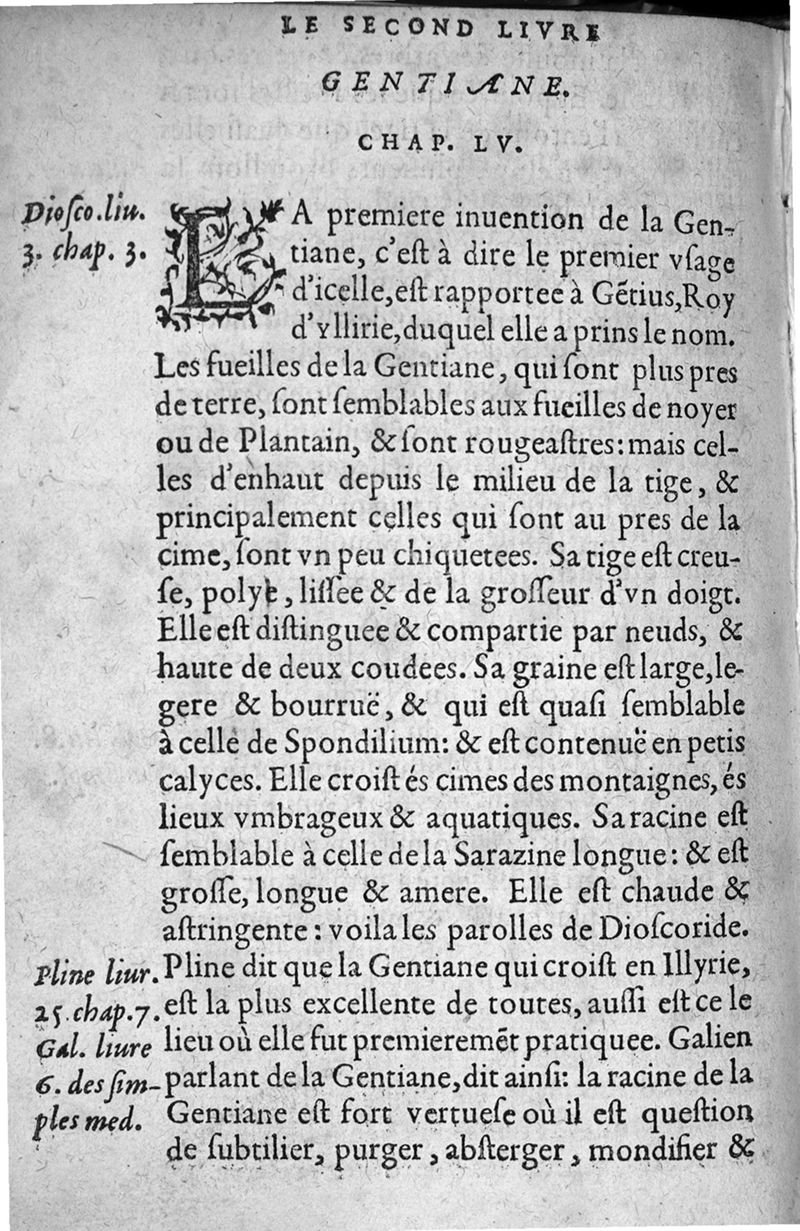 LE SECOND LIVRE
GENTIANE.
CHAP. LV.
Dioſco. liu.
3. chap. 3.
LA premiere inuention de la Gen-
tiane, c'eſt à dire le premier vſage
d'icelle, eſt rapportee à Gẽtius, Roy
d'Yllirie, duquel elle a prins le nom.
Les fueilles de la Gentiane, qui ſont plus pres
de terre, ſont ſemblables aux fueilles de noyer
ou de Plantain, & ſont rougeaſtres: mais cel-
les d'enhaut depuis le milieu de la tige, &
principalement celles qui ſont au pres de la
cime, ſont vn peu chiquetees. Sa tige eſt creu-
ſe, polye, liſſee & de la groſſeur d'vn doigt.
Elle eſt diſtinguee & compartie par neuds, &
haute de deux coudees. Sa graine eſt large, le-
gere & bourruë, & qui eſt quaſi ſemblable
à celle de Spondilium: & eſt contenuë en petis
calyces. Elle croiſt és cimes des montaignes, és
lieux vmbrageux & aquatiques. Sa racine eſt
ſemblable à celle de la Sarazine longue: & eſt
groſſe, longue & amere. Elle eſt chaude &
aſtringente: voila les parolles de Dioſcoride.
Pline liur.
25. chap. 7.
Gal. liure
6. des ſim-
ples med.
Pline dit que la Gentiane qui croiſt en Illyrie,
eſt la plus excellente de toutes, auſſi eſt ce le
lieu où elle fut premieremẽt pratiquee. Galien
parlant de la Gentiane, dit ainſi: la racine de la
Gentiane eſt fort vertueſe où il eſt queſtion
de ſubtilier, purger, abſterger, mondifier &